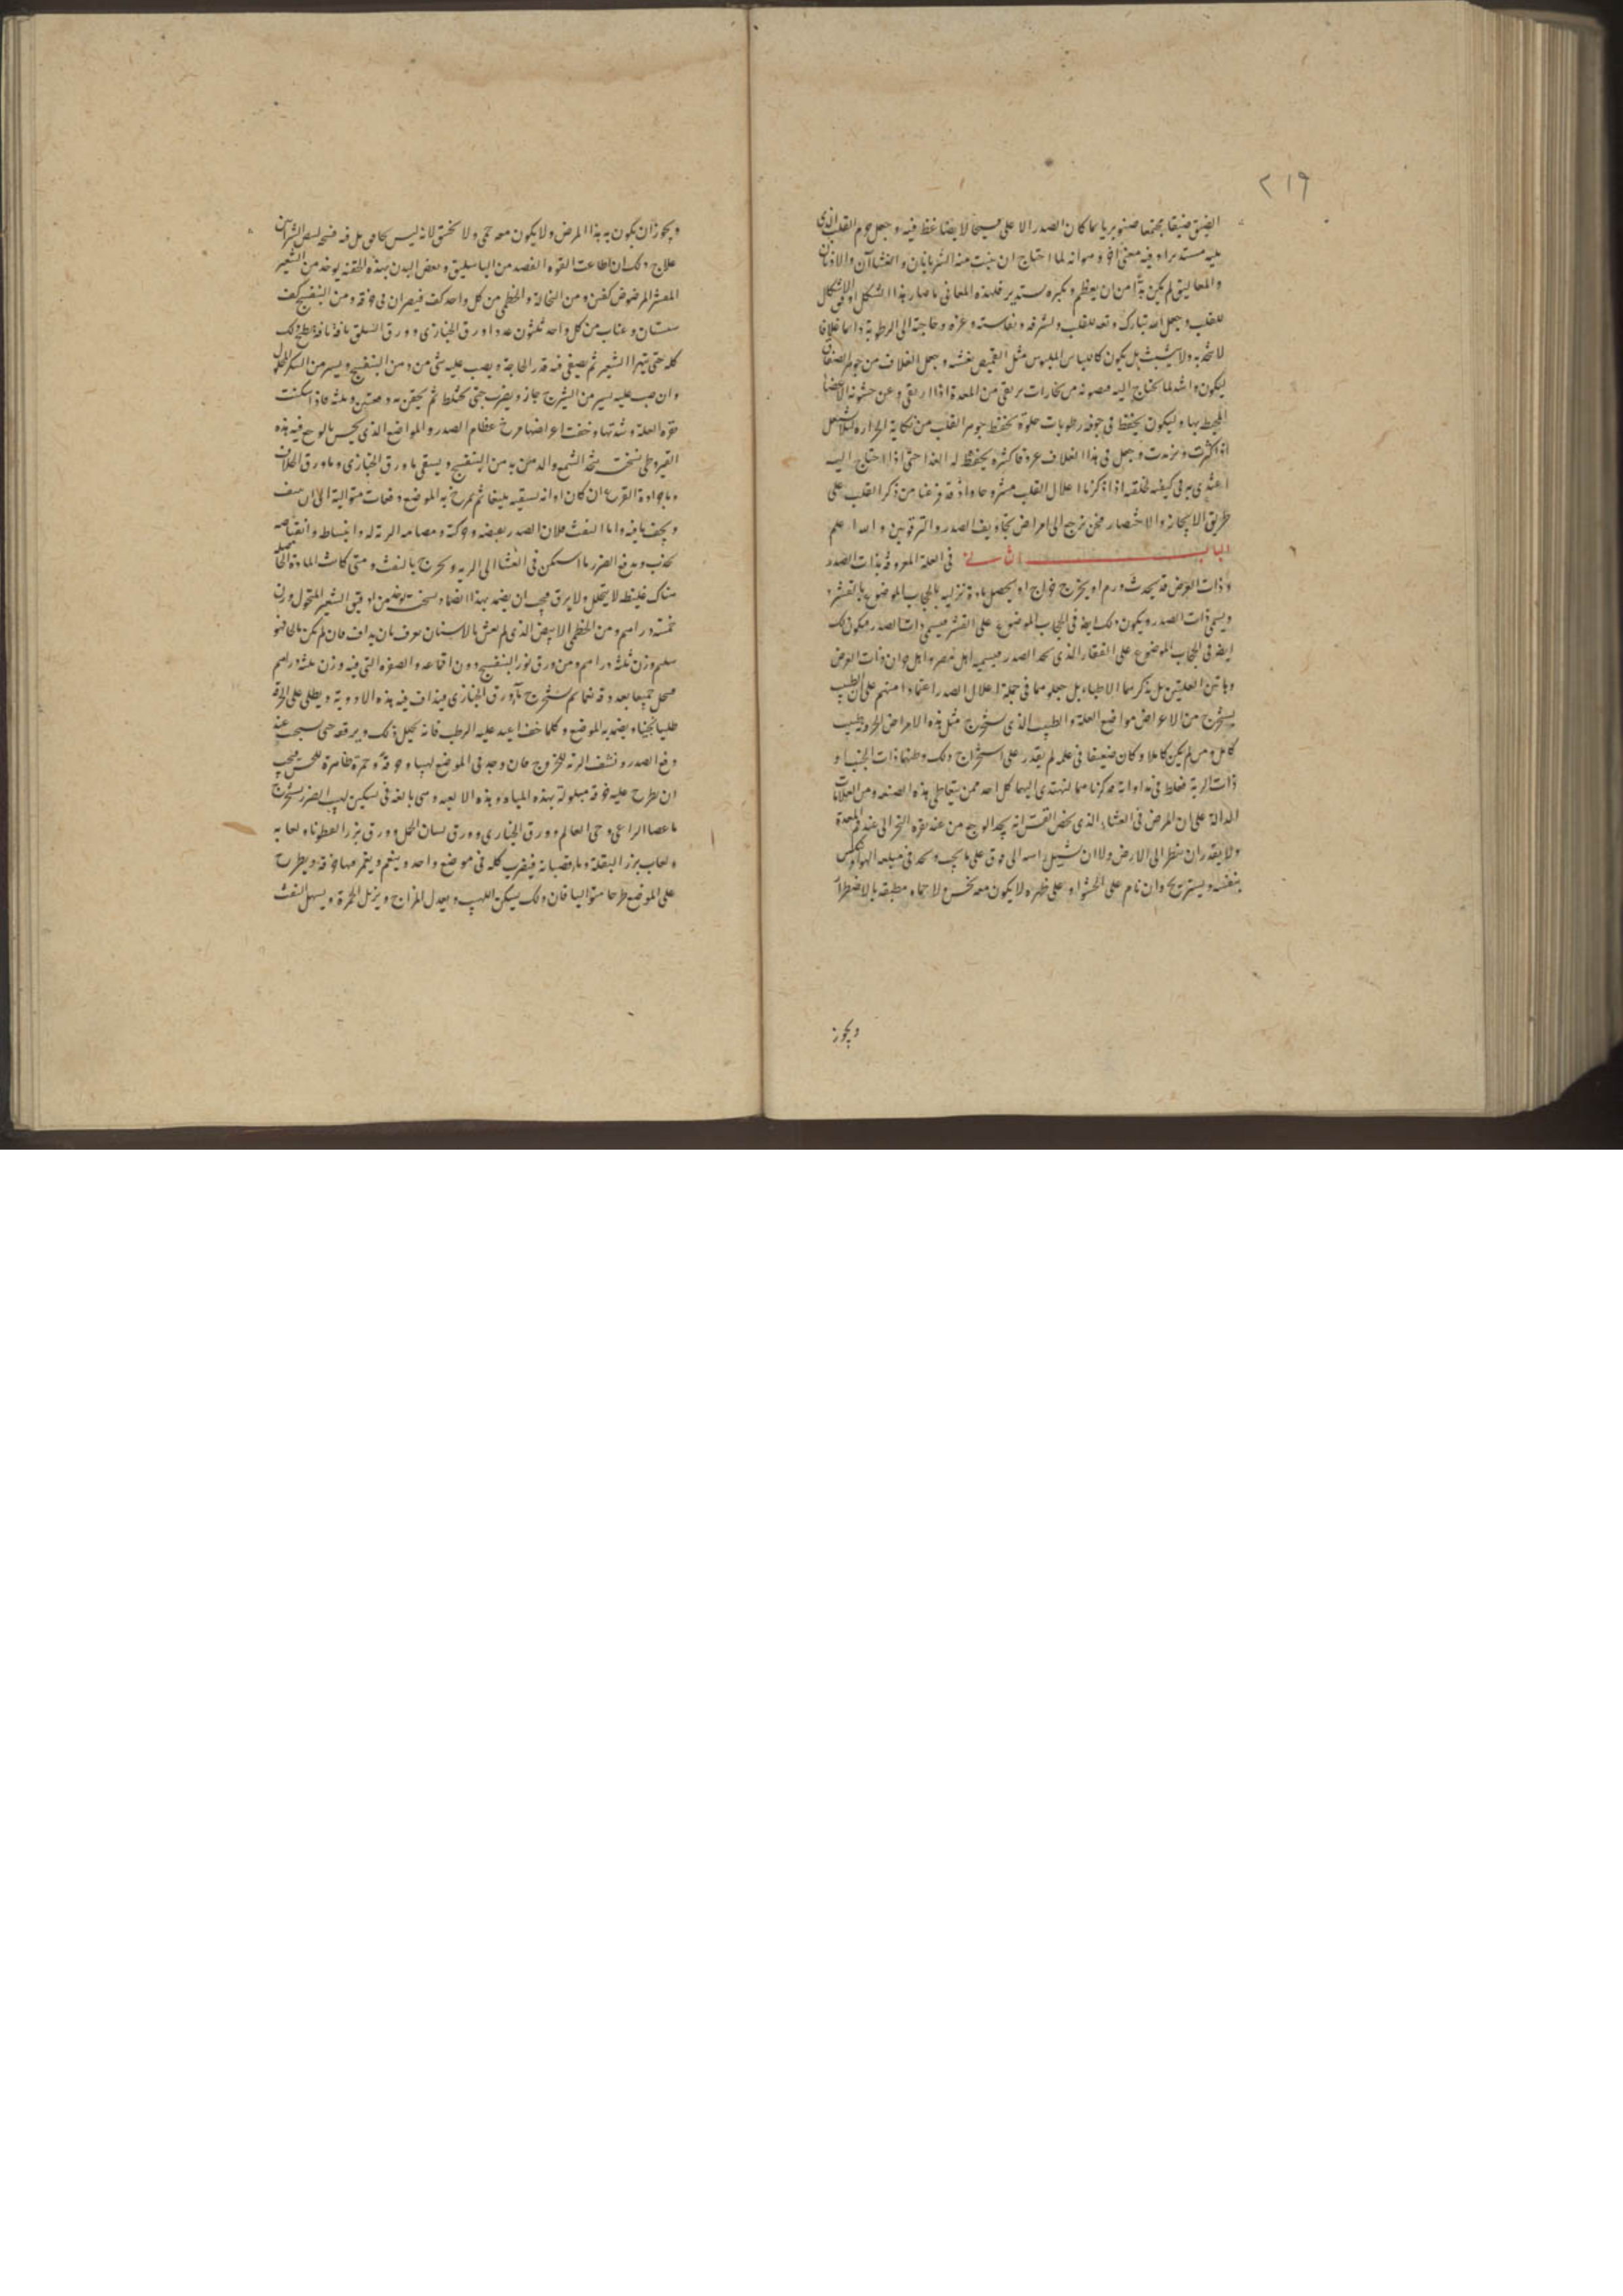 ٢١٩
الضيق ضيقا مجتمعا صنوبريا لما كان الصدر الاعلى فسيحا لا يضاغط فيه وجعل جرم القلب الذي
يليه مستديرا وفيه معنى آخر وهو انه لما احتاج ان ينبت منه الشريانان والغشاآن والاذنان
والمعاليق لم يكن بدّا من ان يعظم ويكبر ويستدير فلهذه المعاني ما صار هذا الشكل اوفق الاشكال
للقلب وجعل الله تبارك وتعه للقلب ولشرفه ونفاسته وعزه وحاجته الى الرطوبة دائما غلافا
لا يتحد به ولا يتشبث بل يكون كاللباس الملبوس مثل القميص يغشه وجعل الغلاف من جوهر الصفاق
ليكون واشد لما يحتاج اليه فصونه من بخارات يرتقي من المعدة اذا ارتقى وعن خشونة الاعضا
المحيط بها وليكون يحفظ في جوفه رطوبات حلوة يحفظ جوهر القلب من نكاية الحرارة لئلا يشتعل
اذا كثرت وتزيدت وجعل في هذا الغلاف عروقا كثيره يحفظ له الغذا حتى اذا احتاج اليه
اغتذى به في كيفيه خلقته اذا ذكرنا اعلال القلب مشروحا واذ قد فرغنا من ذكر القلب على
طريق الايجاز والاختصار فنحن نرجع الى امراض تجاويف الصدر والترقوتين والله اعلم
الباب الثاني في العلة المعروفة بذات الصدر
وذات العرض قد يحدث ورم او يخرج خراج او يحصل مادة نزلية بالحجاب الموضوع بالقشر و
ويسمى ذات الصدر ويكون ذلك ايضا في الحجاب الموضوع على القشر فيسمى ذات الصدر فيكون ذلك
ايضا في الحجاب الموضوع على الفقار الذي تحد الصدر فيسميه اهل مصر واهل حران ذات العرض
وهاتين العلتين لم يذكرهما الاطباء بل جعلوهما في جملة اعلال الصدر اعتمادا منهم على ان الطبيب
يستخرج من الاعراض مواضع العلة والطبيب الذي يستخرج مثل هذه الامراض الجزوية طبيب
كامل ومن لم يكن كاملا وكان ضعيفا في علمه لم يقدر على استخراج ذلك وظنها ذات الجنب او
ذات الرية فغلط في مداواته فذكرناهما لتهتدي اليهما كل احد ممن يتعاطى هذه الصنعه ومن العلامات
الدالة على ان المرض في الغشاء الذي يخص القس انه يجد الوجع من عند نقرة النحر الى عند فم المعدة
ولا يقدر ان ينظر الى الارض ولا ان يشيل راسه الى فوق على ما يجب ويجد في مبلعه الهواء
بنفسه ويستريح وان نام على الحشو او على ظهره لا يكون معه نخس ولا حماه مطبقه بالاضطرار
ويجوز
ويجوز ان يكون به هذا المرض ولا يكون معه حمى ولا نخس لانه ليس بحامى بل فيه فسحة
علاج ذلك ان اطاعت القوه الفصد من الباسليق ونفض البدن بهذه الحقنة يوخذ من الشعير
المقشر المرضوض كفين ومن النخالة والخطمي من كل واحد كف فيصران في خرقه ومن البنفسج كف
سبستان وعناب من كل واحد ثلثون عددا ورق الخبازى وورق السلق باقة باقة يطبخ ذلك
كله حتى يتهرا الشعير ثم يصفى منه قدر الحاجة ويصب عليه شى من دهن البنفسج ويسير من السكر المحلول
وان صب عليه يسير من الشيرج جاز ويضرب حتى يختلط ثم يحقن به دفعتين وثلثه فاذا سكنت
قوة العلة وشدتها وخفت اعراضها مرخ عظام الصدر والمواضع الذي يحس بالوجع فيه بهذه
القيروطى نسخته يتخذ الشمع والدهن به من البنفسج ويسقى ماء ورق الخبازى وماء ورق
وماء جرادة القرع ان كان اوانه يسقيه بليغا ثم يمرخ به الموضع دفعات متوالية الى ان
ويجف ما فيه واما النفث فلان الصدر بعضه وحركته ومصامه الرية له وانبساطه وانقباضه
يجذب ويدفع الضرر ما اسكن في الغشا الى الريه ويخرج بالنفث ومتى كانت المادة
هناك غليظه لا يتحلل ولا يرق فيجب ان يضمد بهذا الضماد نسخته يوخذ من دقيق الشعير المنخول وزن
خمسة دراهم ومن الخطمى الابيض الذي لم يغش بالاسنان يعرف بان يداف فان لم يكن
سليم وزن ثلثة دراهم ومن ورق نور البنفسج دون اقماعه والصفرة التي فيه وزن ثلثة دراهم
ينخل جميعا بعد دقه ناعما ثم يستخرج ماء ورق الخبازى فيداف فيه هذه الادوية ويطلى على الخرقة
طليا ثخينا ويضمد به الموضع وكلما خف اعيد عليه الرطب فانه يحلل ذلك ويرققه حتى
دفع الصدر ونشف الرية للخروج فان وجد في الموضع لهيبا وحرقة وحمرة ظاهرة للحس فيجب
ان يطرح عليه خرقة مبلولة بهذه المياه وهذه الالعبه وهى بالغه في تسكين لهيب الصدر يستخرج
ماء عصا الراعي وحى العالم وورق الخبازى وورق لسان الحمل وورق بزر القطونا ولعابه
ولعاب بزر البقلة وماء قضبانه فيضرب كله في موضع واحد وينعم ويغمر فيها خرقة ويطرح
على الموضع طرحا متواليا فان ذلك يسكن اللهيب ويعدل المزاج ويزيل الحمرة ويسهل النفث